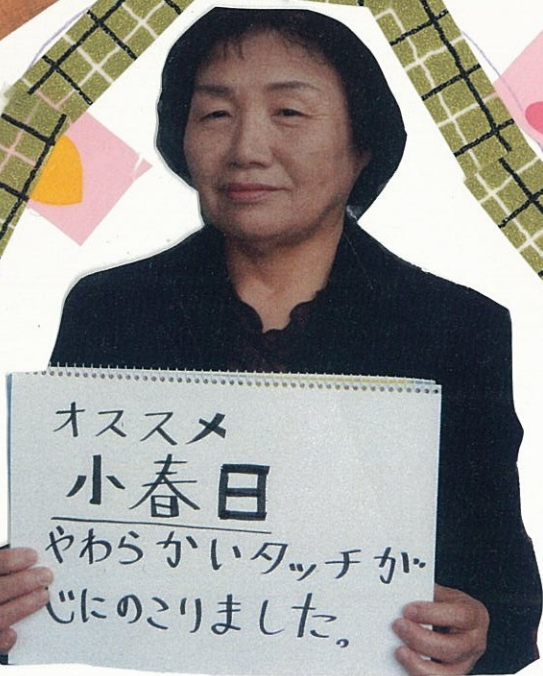 オススメ
小春日
やわらかいタッチが
じにのこりました。